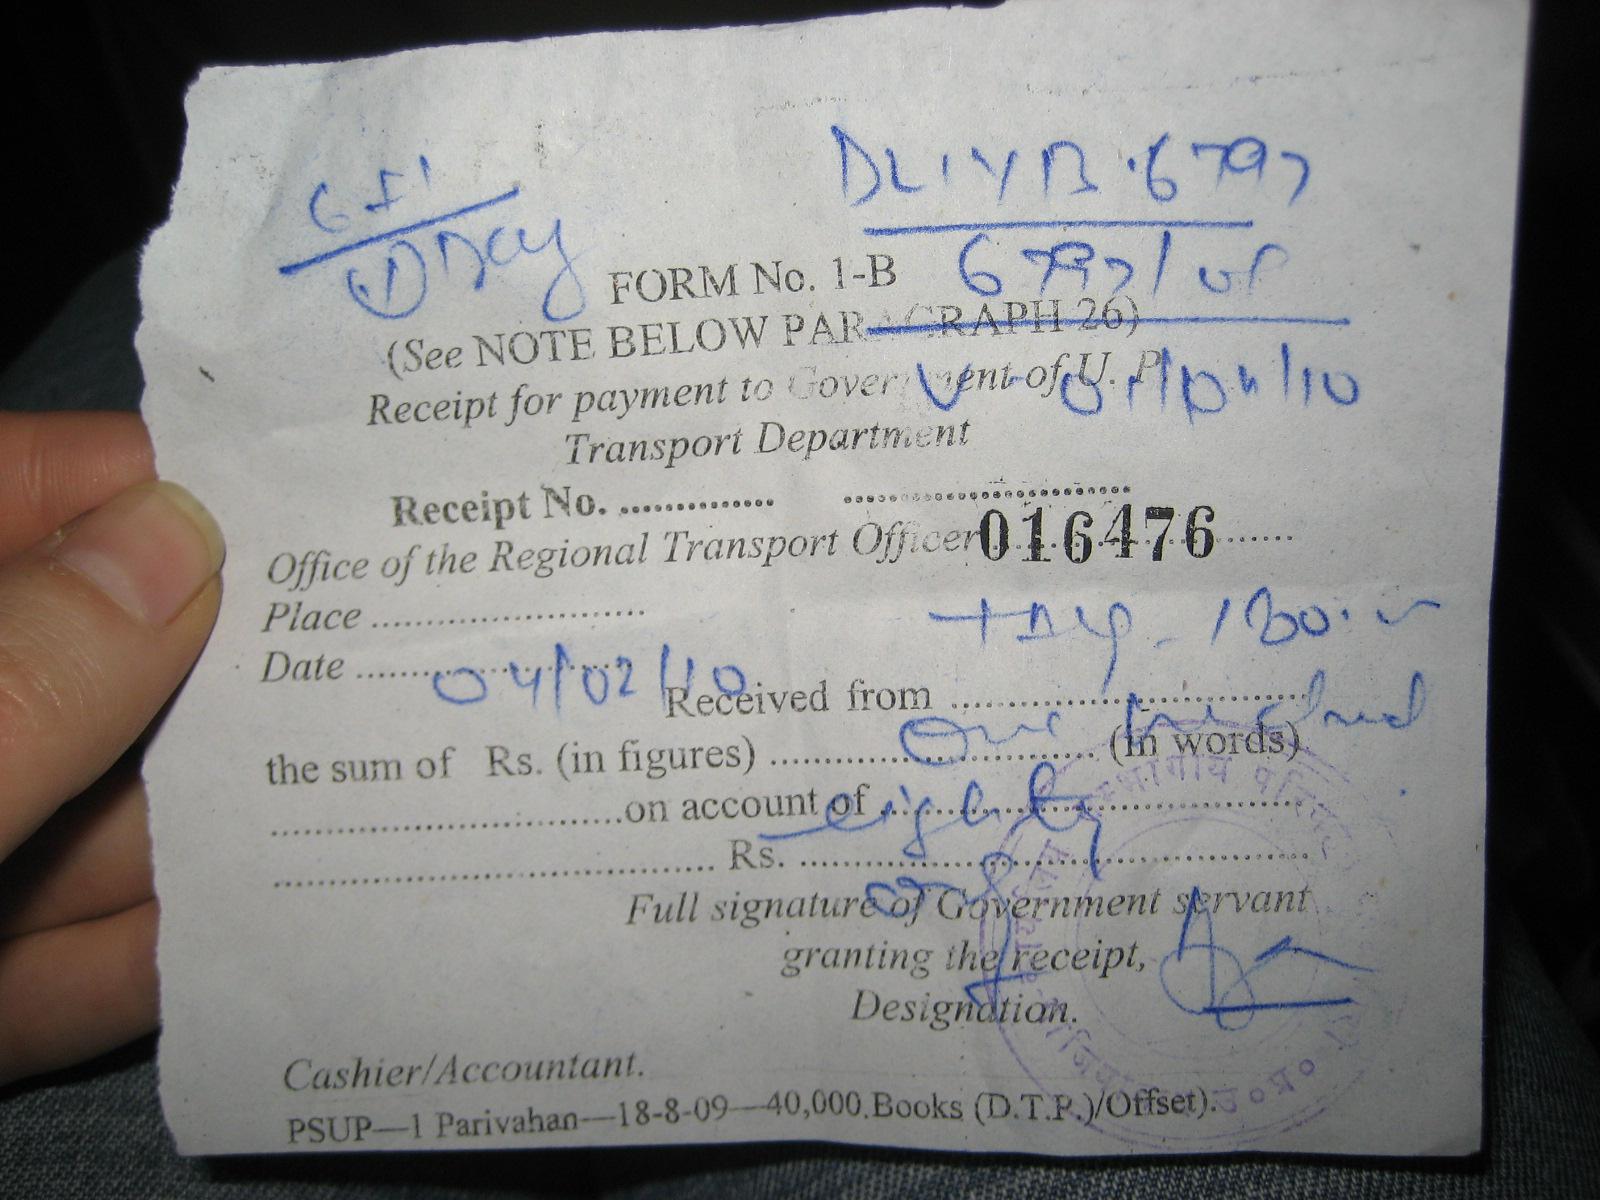 6+1
① Day
DL1YB.6797
FORM No. 1-B
6797/
(See NOTE BELOW PARAGRAPH 26)
Receipt for payment to Government of U. P.
Transport Department
Receipt No. .............. ..............................
Office of the Regional Transport Officer 016476
Place ..........................
Date ........ 04/02/10
Received from ..............................
One hundred
the sum of Rs. (in figures) .............................. (in words)
eighty
..............................on account of ..............................
.............................. Rs. ..............................
Full signature of Government servant
granting the receipt,
Designation.
Cashier/Accountant.
PSUP—1 Parivahan—18-8-09—40,000 Books (D.T.P.)/Offset).